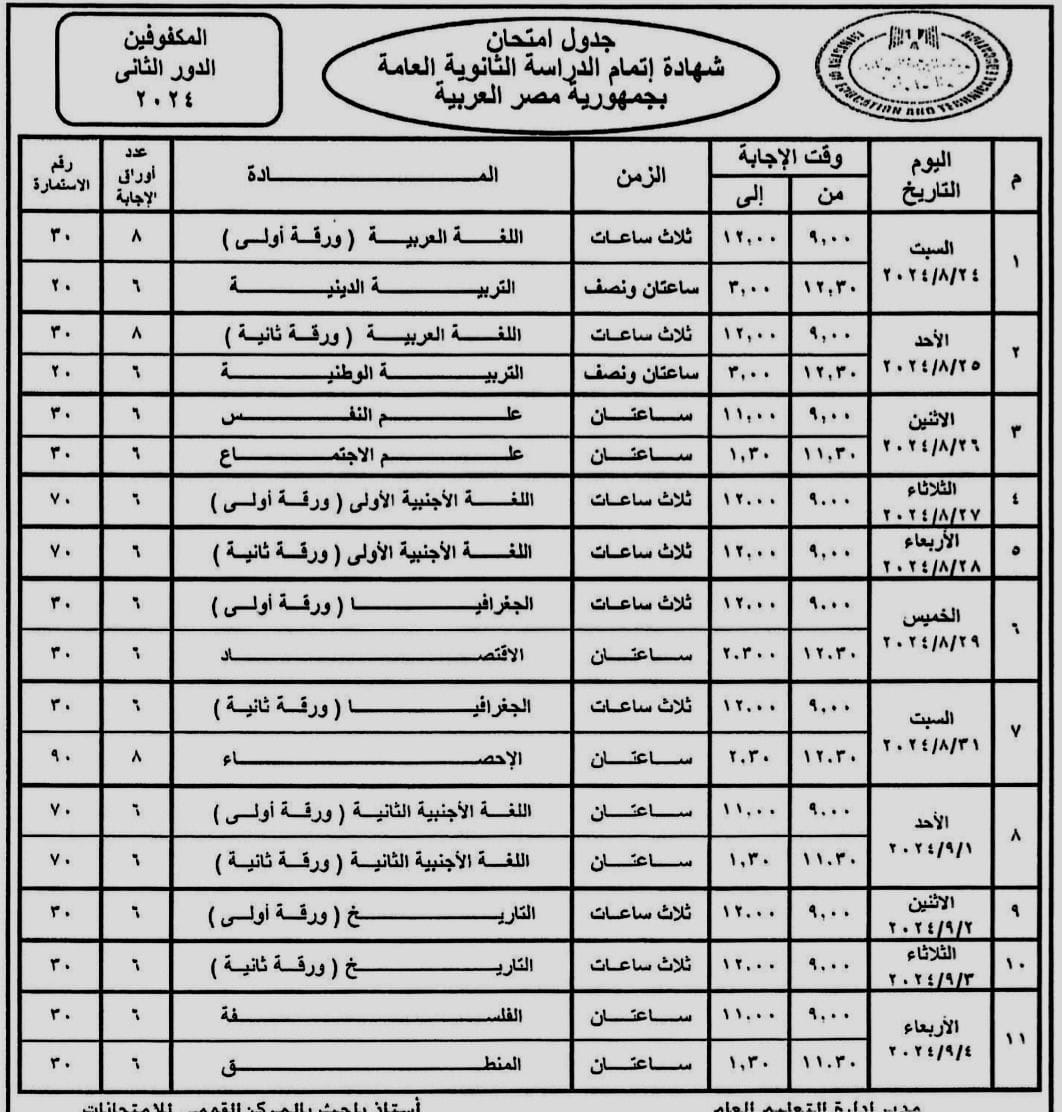 جدول امتحان
شهادة إتمام الدراسة الثانوية العامة
بجمهورية مصر العربية
المكفوفين
الدور الثانى
٢٠٢٤
EDUCATION AND TECHNICAL
م اليوم التاريخ وقت الإجابة من إلى الزمن المــادة عدد أوراق الإجابة رقم الاستمارة
١ السبت ٢٠٢٤/٨/٢٤ ٩,٠٠ ١٢,٠٠ ثلاث ساعات اللغة العربية ( ورقة أولى ) ٨ ٣٠
١٢,٣٠ ٣,٠٠ ساعتان ونصف التربية الدينية ٦ ٢٠
٢ الأحد ٢٠٢٤/٨/٢٥ ٩,٠٠ ١٢,٠٠ ثلاث ساعات اللغة العربية ( ورقة ثانية ) ٨ ٣٠
١٢,٣٠ ٣,٠٠ ساعتان ونصف التربية الوطنية ٦ ٢٠
٣ الاثنين ٢٠٢٤/٨/٢٦ ٩,٠٠ ١١,٠٠ ساعتان علم النفس ٦ ٣٠
١١,٣٠ ١,٣٠ ساعتان علم الاجتماع ٦ ٣٠
٤ الثلاثاء ٢٠٢٤/٨/٢٧ ٩,٠٠ ١٢,٠٠ ثلاث ساعات اللغة الأجنبية الأولى ( ورقة أولى ) ٦ ٧٠
٥ الأربعاء ٢٠٢٤/٨/٢٨ ٩,٠٠ ١٢,٠٠ ثلاث ساعات اللغة الأجنبية الأولى ( ورقة ثانية ) ٦ ٧٠
٦ الخميس ٢٠٢٤/٨/٢٩ ٩,٠٠ ١٢,٠٠ ثلاث ساعات الجغرافيا ( ورقة أولى ) ٦ ٣٠
١٢,٣٠ ٢,٣٠٠ ساعتان الاقتصاد ٦ ٣٠
٧ السبت ٢٠٢٤/٨/٣١ ٩,٠٠ ١٢,٠٠ ثلاث ساعات الجغرافيا ( ورقة ثانية ) ٦ ٣٠
١٢,٣٠ ٢,٣٠ ساعتان الإحصاء ٨ ٩٠
٨ الأحد ٢٠٢٤/٩/١ ٩,٠٠ ١١,٠٠ ساعتان اللغة الأجنبية الثانية ( ورقة أولى ) ٦ ٧٠
١١,٣٠ ١,٣٠ ساعتان اللغة الأجنبية الثانية ( ورقة ثانية ) ٦ ٧٠
٩ الاثنين ٢٠٢٤/٩/٢ ٩,٠٠ ١٢,٠٠ ثلاث ساعات التاريخ ( ورقة أولى ) ٦ ٣٠
١٠ الثلاثاء ٢٠٢٤/٩/٣ ٩,٠٠ ١٢,٠٠ ثلاث ساعات التاريخ ( ورقة ثانية ) ٦ ٣٠
١١ الأربعاء ٢٠٢٤/٩/٤ ٩,٠٠ ١١,٠٠ ساعتان الفلسفة ٦ ٣٠
١١,٣٠ ١,٣٠ ساعتان المنطق ٦ ٣٠
مدير إدارة التعليم العام أستاذ باحث بالمركز القومى للامتحانات